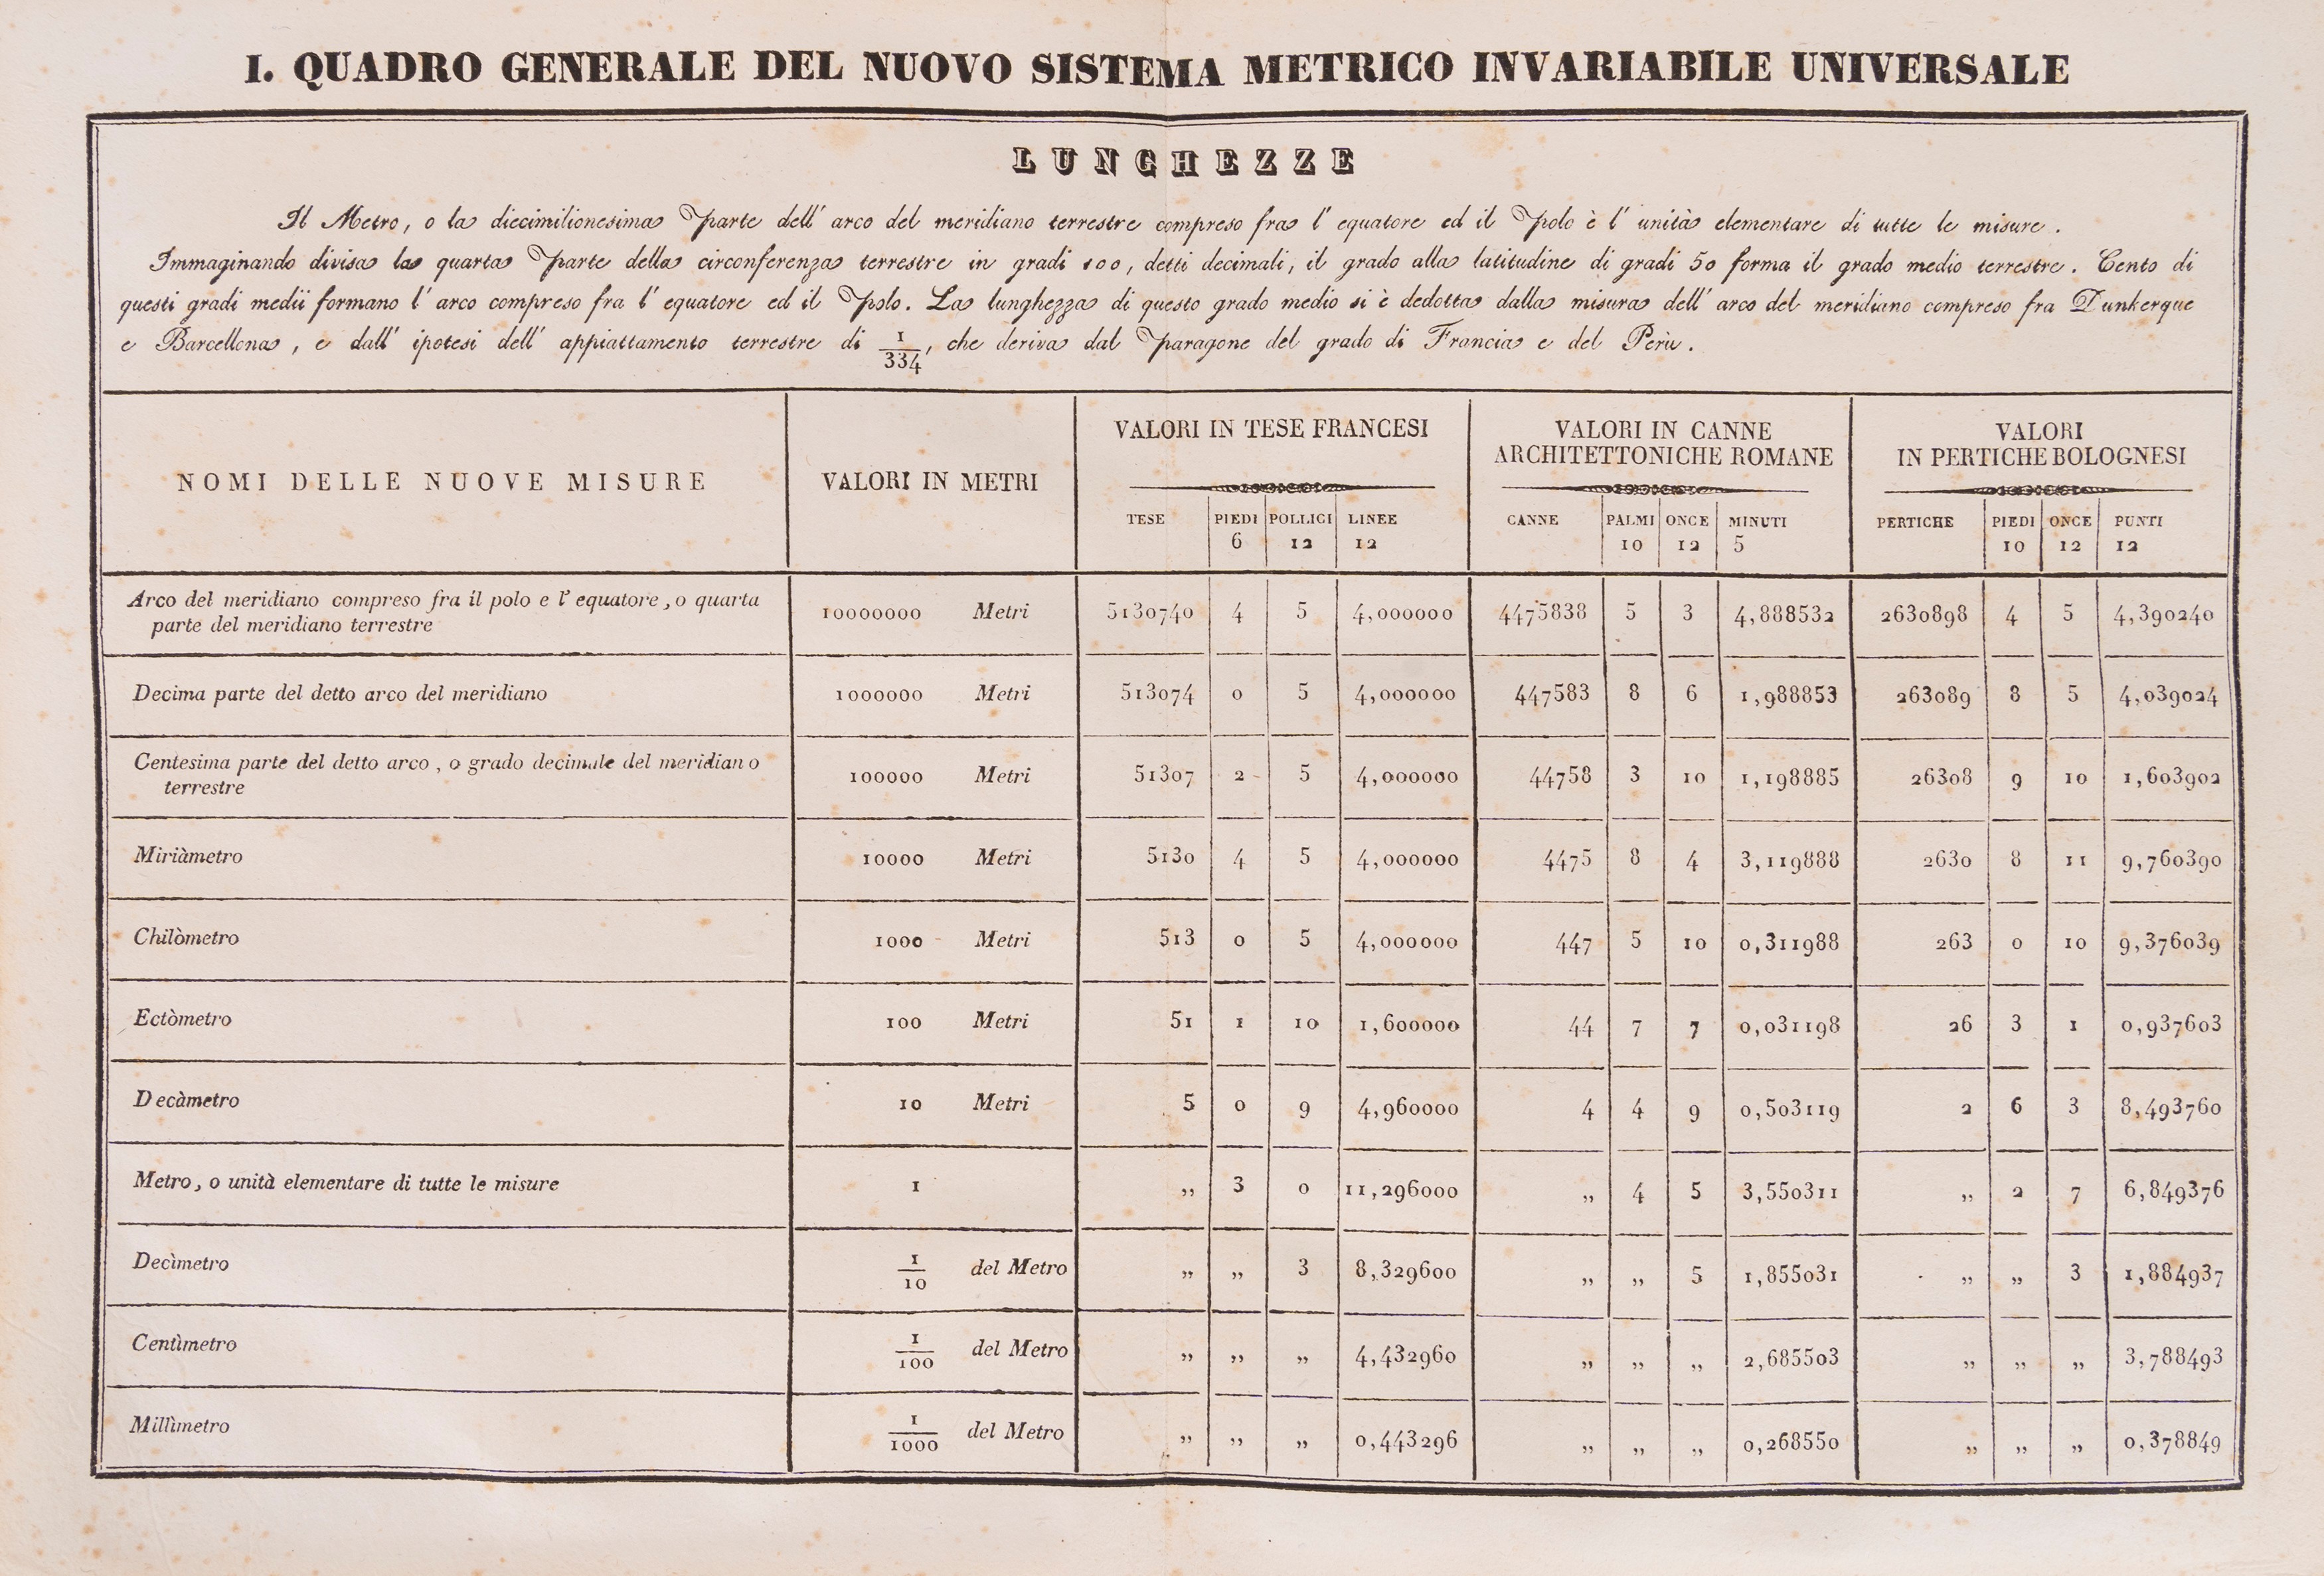 I. QUADRO GENERALE DEL NUOVO SISTEMA METRICO INVARIABILE UNIVERSALE
LUNGHEZZE
Il Metro, o la diecimilionesima Parte dell' arco del meridiano terrestre compreso fra l' equatore ed il Polo è l' unità elementare di tutte le misure.
Immaginando divisa la quarta Parte della circonferenza terrestre in gradi 100, detti decimali, il grado alla latitudine di gradi 50 forma il grado medio terrestre. Cento di
questi gradi medii formano l' arco compreso fra l' equatore ed il Polo. La lunghezza di questo grado medio si è dedotta dalla misura dell' arco del meridiano compreso fra Dunkerque
e Barcellona, e dall' ipotesi dell' appiattamento terrestre di 1/334, che deriva dal Paragone del grado di Francia e del Perù.
NOMI DELLE NUOVE MISURE
VALORI IN METRI
VALORI IN TESE FRANCESI
TESE PIEDI POLLICI LINEE
6 12 12
VALORI IN CANNE
ARCHITETTONICHE ROMANE
CANNE PALMI ONCE MINUTI
10 12 5
VALORI
IN PERTICHE BOLOGNESI
PERTICHE PIEDI ONCE PUNTI
10 12 12
Arco del meridiano compreso fra il polo e l' equatore, o quarta
parte del meridiano terrestre
10000000 Metri 5130740 4 5 4,000000 4475838 5 3 4,888532 2630898 4 5 4,390240
Decima parte del detto arco del meridiano 1000000 Metri 513074 0 5 4,000000 447583 8 6 1,988853 263089 8 5 4,039024
Centesima parte del detto arco, o grado decimale del meridiano
terrestre
100000 Metri 51307 2 5 4,000000 44758 3 10 1,198885 26308 9 10 1,603902
Miriàmetro 10000 Metri 5130 4 5 4,000000 4475 8 4 3,119888 2630 8 11 9,760390
Chilòmetro 1000 Metri 513 0 5 4,000000 447 5 10 0,311988 263 0 10 9,376039
Ectòmetro 100 Metri 51 1 10 1,600000 44 7 7 0,031198 26 3 1 0,937603
Decàmetro 10 Metri 5 0 9 4,960000 4 4 9 0,503119 2 6 3 8,493760
Metro, o unità elementare di tutte le misure 1 ,, 3 0 11,296000 ,, 4 5 3,550311 ,, 2 7 6,849376
Decìmetro 1/10 del Metro ,, ,, 3 8,329600 ,, ,, 5 1,855031 ,, ,, 3 1,884937
Centìmetro 1/100 del Metro ,, ,, ,, 4,432960 ,, ,, ,, 2,685503 ,, ,, ,, 3,788493
Millìmetro 1/1000 del Metro ,, ,, ,, 0,443296 ,, ,, ,, 0,268550 ,, ,, ,, 0,378849